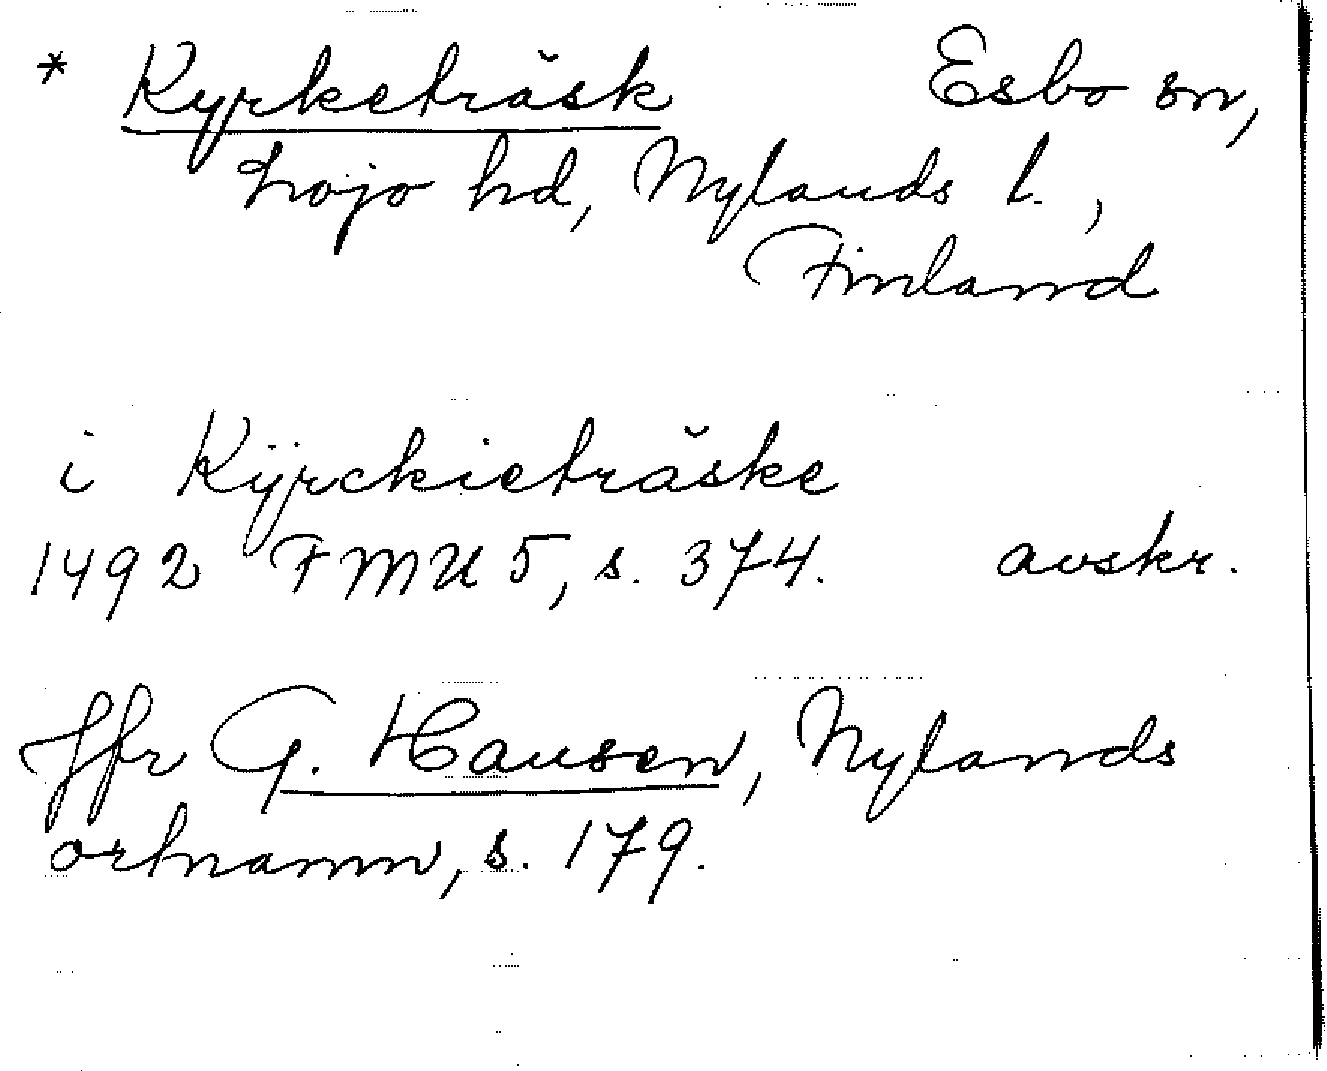 * Kyrketräsk Esbo sn,
Lojo hd, Nylands l.,
Finland
i Kÿrckieträske
1492 FMU 5, s. 374. avskr.
Jfr G. Hausen, Nylands
ortnamn, s. 179.